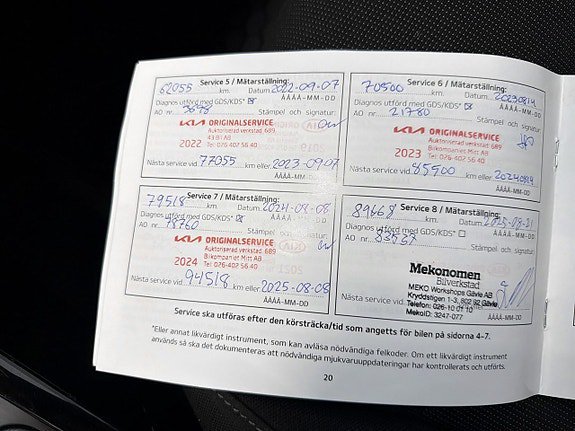 Service 5 / Mätarställning:
62055 km. Datum 2022-09-07
ÅÅÅÅ-MM-DD
Diagnos utförd med GDS/KDS*
AO nr. 3698 Stämpel och signatur:
KIA ORIGINALSERVICE
Auktoriserad verkstad 689
2022
Tel: 026-402 56 40
Nästa service vid 77055 km eller 2023-09-07
ÅÅÅÅ-MM-DD
Service 6 / Mätarställning:
70500 km. Datum 20230814
ÅÅÅÅ-MM-DD
Diagnos utförd med GDS/KDS*
AO nr. 21780 Stämpel och signatur:
KIA ORIGINALSERVICE
Auktoriserad verkstad 689
2023 Bilkompaniet Mitt AB
Tel: 026-402 56 40
Nästa service vid 85500 km eller 20240814
ÅÅÅÅ-MM-DD
Service 7 / Mätarställning:
79518 km. Datum 2024-08-08
ÅÅÅÅ-MM-DD
Diagnos utförd med GDS/KDS*
AO nr. 78760 Stämpel och signatur:
KIA ORIGINALSERVICE
Auktoriserad verkstad 689
2024 Bilkompaniet Mitt AB
Tel: 026-402 56 40
Nästa service vid 94518 km eller 2025-08-08
ÅÅÅÅ-MM-DD
Service 8 / Mätarställning:
89668 km. Datum
ÅÅÅÅ-MM-DD
Diagnos utförd med GDS/KDS*
AO nr. Stämpel och signatur:
Mekonomen
Bilverkstad
MEKO Workshops Gävle AB
Kryddstigen 1-3, 802 92 Gävle
Telefon: 026-10 01 10
MekoID: 3247-077
Nästa service vid
ÅÅÅÅ-MM-DD
Service ska utföras efter den körsträcka/tid som angetts för bilen på sidorna 4–7.
*Eller annat likvärdigt instrument, som kan avläsa nödvändiga felkoder. Om ett likvärdigt instrument
används så ska det dokumenteras att nödvändiga mjukvaruuppdateringar har kontrollerats och utförts.
20